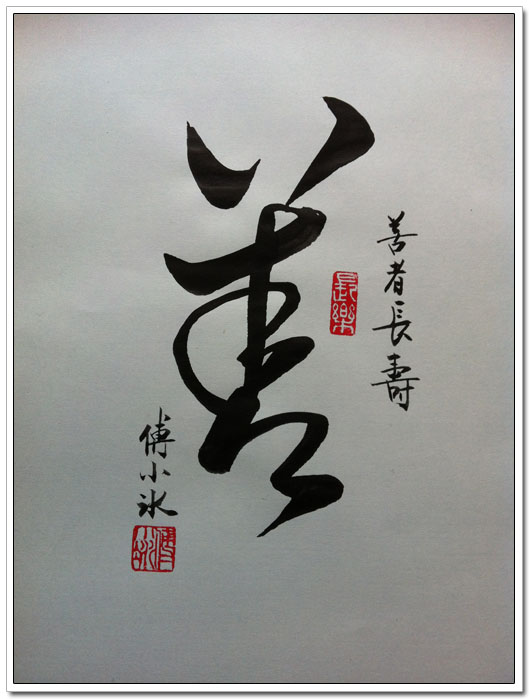 善
善者長壽
長樂
傅小冰